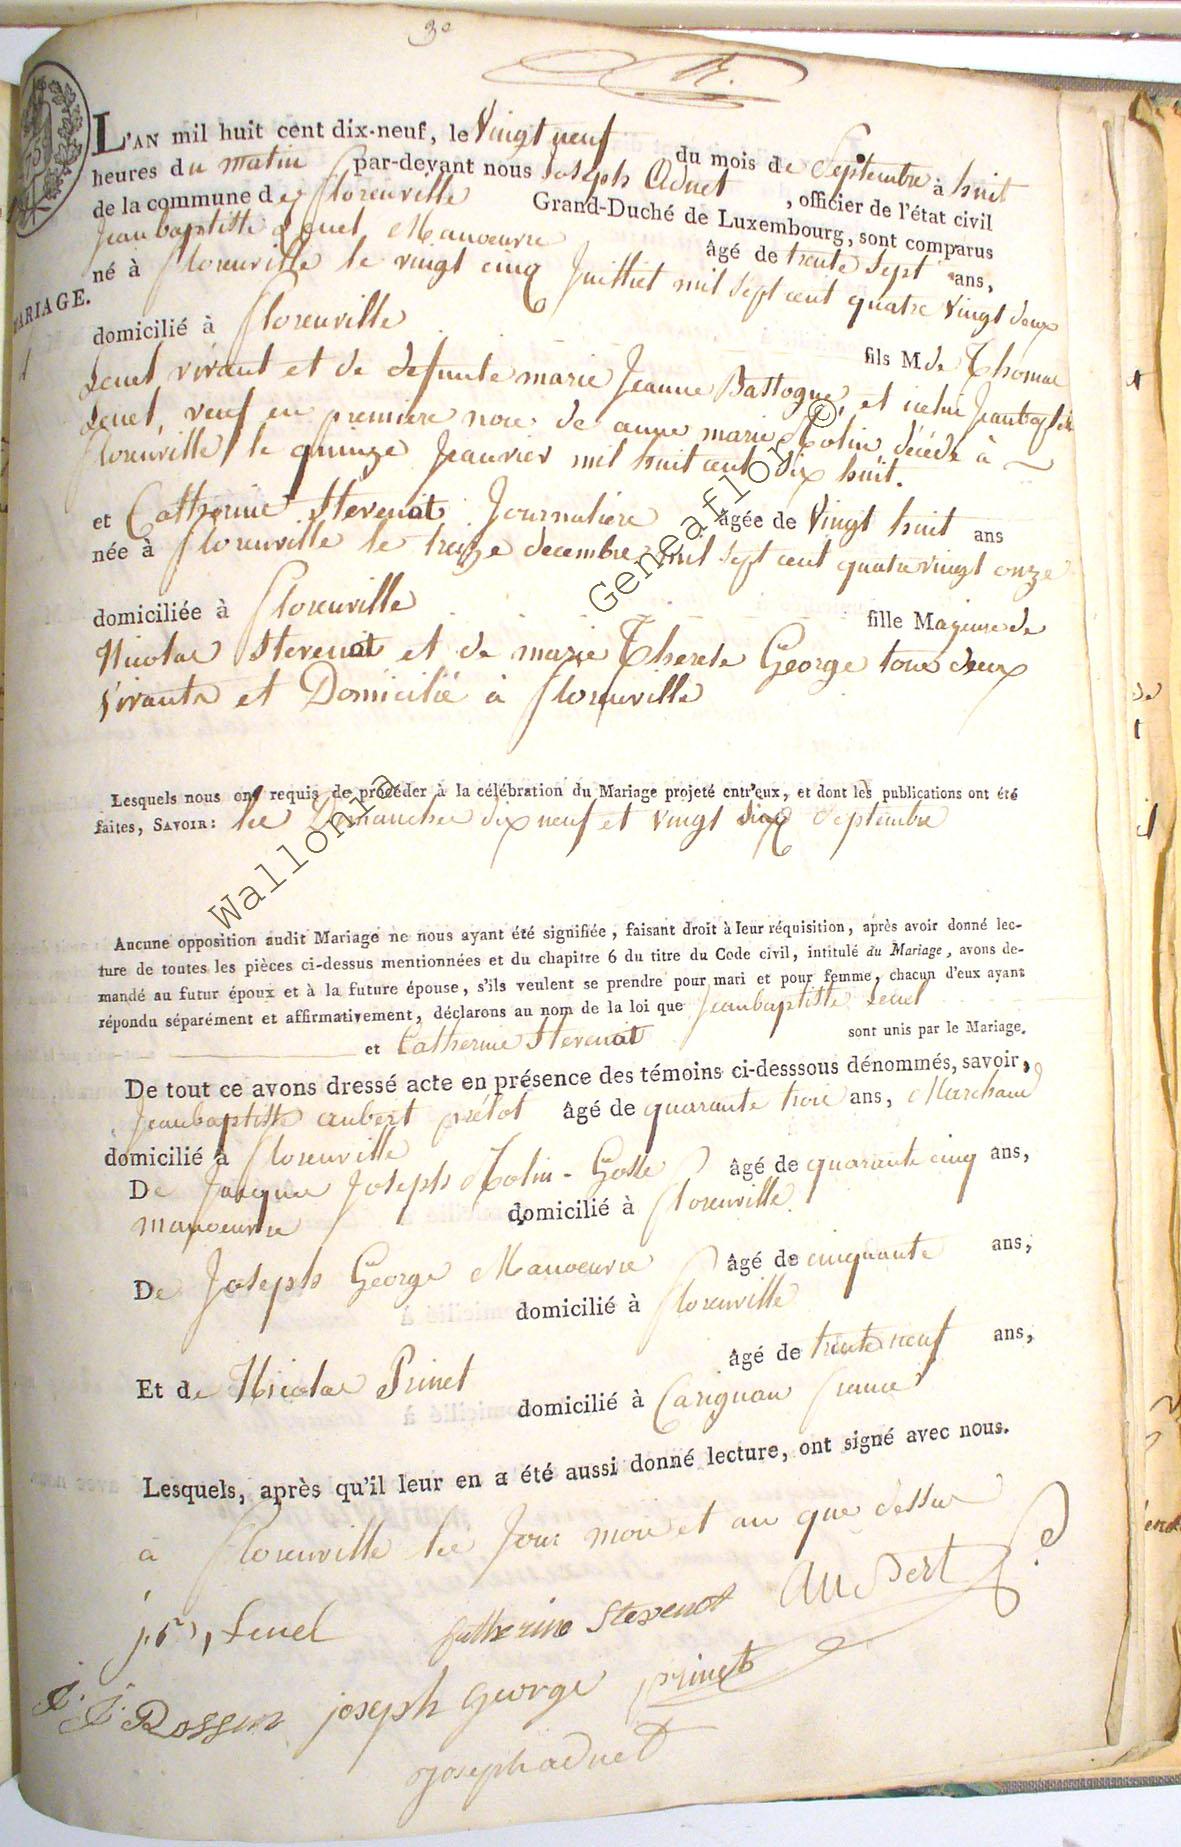 3e
L'AN mil huit cent dix-neuf, le Vingt neuf du mois de Septembre à huit
heures du matin par-devant nous Joseph Adnet, officier de l'état civil
de la commune de florenville Grand-Duché de Luxembourg, sont comparus
Jeanbaptiste Lenel Manoeuvre âgé de trente Sept ans,
né à florenville le vingt cinq Juilliet mil Sept cent quatre Vingt deux
MARIAGE.
domicilié à florenville fils M. de Thomas
Lenel vivant et de defunte marie Jeanne Bastogne, et icelui Jeanbaptiste
Lenel, veuf en premiere noce de anne marie décédé à
florenville le quinze Jeanvier mil huit cent dix huit.
et Catherine Stevenot Journaliere âgée de Vingt huit ans
née à florenville le treize decembre mil Sept cent quatrevingt onze
domiciliée à florenville fille Majeure de
Nicolas Stevenot et de marie Therese George tous deux
vivants et Domicilié à florenville
Lesquels nous ont requis de procéder à la célébration du Mariage projeté entr'eux, et dont les publications ont été
faites, SAVOIR: les Dimanches dix neuf et vingt Septembre
Aucune opposition audit Mariage ne nous ayant été signifiée, faisant droit à leur réquisition, après avoir donné lec-
ture de toutes les pièces ci-dessus mentionnées et du chapitre 6 du titre du Code civil, intitulé du Mariage, avons de-
mandé au futur époux et à la future épouse, s'ils veulent se prendre pour mari et pour femme, chacun d'eux ayant
répondu séparément et affirmativement, déclarons au nom de la loi que Jeanbaptiste Lenel
et Catherine Stevenot sont unis par le Mariage.
De tout ce avons dressé acte en présence des témoins ci-desssous dénommés, savoir,
Jeanbaptiste aubert prétot âgé de quarante trois ans, Marchand
domicilié à florenville
De Jacques Joseph âgé de quarante cinq ans,
manoeuvre domicilié à florenville
De Joseph George Manoeuvre âgé de cinquante ans,
domicilié à florenville
Et de Nicolas Prinet âgé de trente neuf ans,
domicilié à Carignan france
Lesquels, après qu'il leur en a été aussi donné lecture, ont signé avec nous.
à florenville les Jour mois et an que dessus
j. b, Lenel Catherine Stevenot Aubert
joseph George prinet
Joseph adnet
Wallonia Geneaflor©